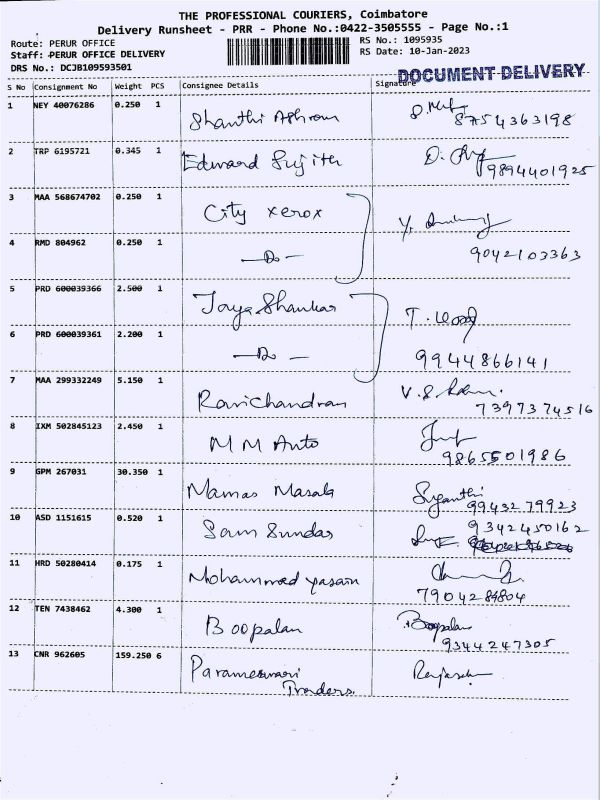 THE PROFESSIONAL COURIERS, Coimbatore
Delivery Runsheet - PRR - Phone No.:0422-3505555 - Page No.:1
Route: PERUR OFFICE
RS No.: 1095935
Staff: PERUR OFFICE DELIVERY
RS Date: 10-Jan-2023
DRS No.: DCJB109593501
DOCUMENT DELIVERY
S No Consignment No Weight PCS Consignee Details Signature
1 NEY 40076286 0.250 1 Shanthi Ashram
8754363198
2 TRP 6195721 0.345 1 Edward Sujith
9894401925
3 MAA 568674702 0.250 1 City xerox
4 RMD 804962 0.250 1 - Do -
9042103363
5 PRD 600039366 2.500 1 Jaya Shankar
6 PRD 600039361 2.200 1 - Do -
9944866141
7 MAA 299332249 5.150 1 Ravichandran
7397374516
8 IXM 502845123 2.450 1 M M Auto
9865501986
9 GPM 267031 30.350 1 Mamas Masala Suganthi
9943279923
10 ASD 1151615 0.520 1 Sam Sundar 9342450162
11 HRD 50280414 0.175 1 Mohammed yasain
7904284804
12 TEN 7438462 4.300 1 Boopalan Boopalan
9344247305
13 CNR 962605 159.250 6 Parameswari
Traders.